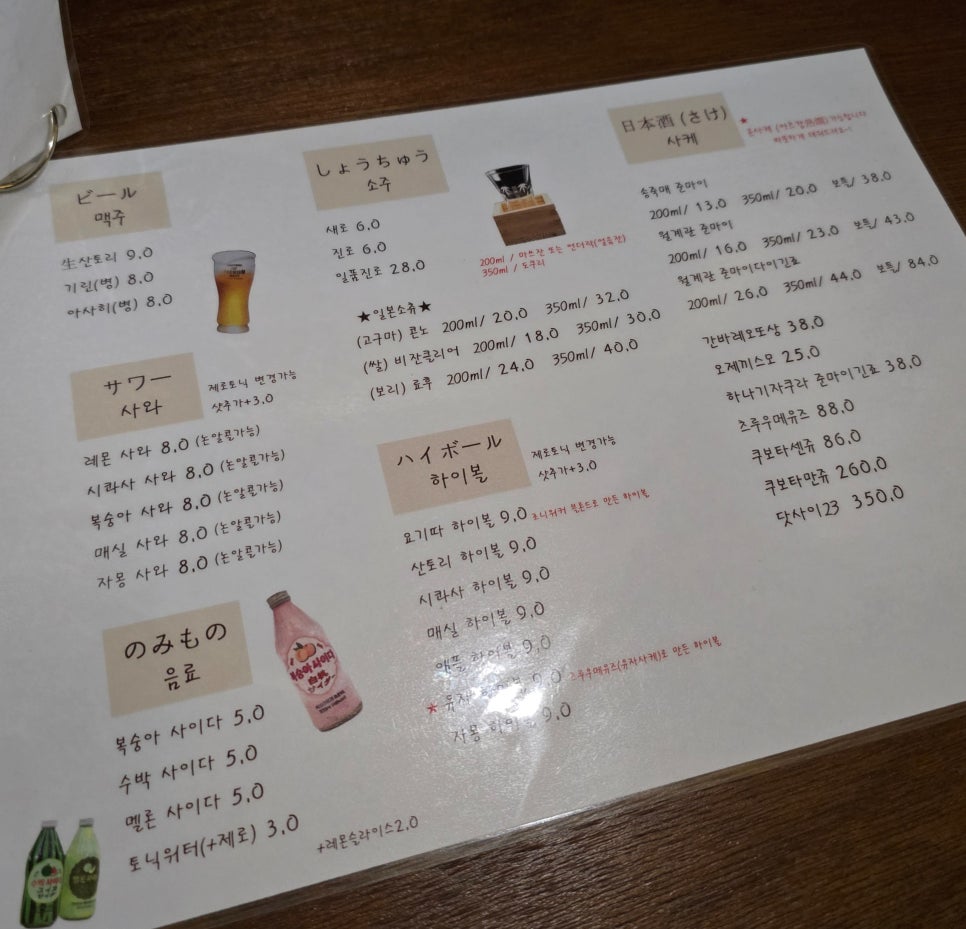 ビール
맥주
生산토리 9.0
기린(병) 8.0
아사히(병) 8.0
サワー
사와
제로토닉 변경가능
샷추가+3.0
레몬 사와 8.0 (논알콜가능)
시콰사 사와 8.0 (논알콜가능)
복숭아 사와 8.0 (논알콜가능)
매실 사와 8.0 (논알콜가능)
자몽 사와 8.0 (논알콜가능)
のみもの
음료
복숭아 사이다 5.0
수박 사이다 5.0
멜론 사이다 5.0
토닉워터(+제로) 3.0
+레몬슬라이스2.0
복숭아 사이다
수박 사이다
しょうちゅう
소주
새로 6.0
진로 6.0
일품진로 28.0
200ml / 마쓰잔 또는 언더락(얼음잔)
350ml / 도쿠리
★일본소츄★
(고구마) 콘노 200ml/ 20.0 350ml/ 32.0
(쌀) 비잔클리어 200ml/ 18.0 350ml/ 30.0
(보리) 료후 200ml/ 24.0 350ml/ 40.0
ハイボール
하이볼
제로토닉 변경가능
샷추가+3.0
요기따 하이볼 9.0 조니워커 블론드로 만든 하이볼
산토리 하이볼 9.0
시콰사 하이볼 9.0
매실 하이볼 9.0
애플 하이볼 9.0
★ 유자 하이볼 9.0 츠루우메유즈(유자사케)로 만든 하이볼
자몽 하이 9.0
日本酒 (さけ)
사케
★ 온사케 (아츠캉熱燗)가능합니다
따뜻하게 데워드려요~!
송죽매 준마이
200ml/ 13.0 350ml/ 20.0 보틀/ 38.0
월계관 준마이
200ml/ 16.0 350ml/ 23.0 보틀/ 43.0
월계관 준마이다이긴죠
200ml/ 26.0 350ml/ 44.0 보틀/ 84.0
간바레오또상 38.0
오제끼스모 25.0
하나기자쿠라 준마이긴죠 38.0
츠루우메유즈 88.0
쿠보타센쥬 86.0
쿠보타만쥬 260.0
닷사이23 350.0